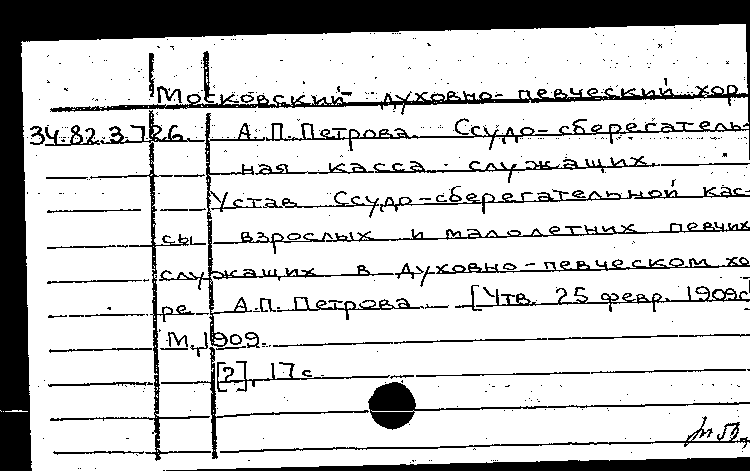 Московский духовно-певческий хор
34.82.3.726. А.П.Петрова. Ссудо-сберегатель-
ная касса служащих.
Устав Ссудо-сберегательной кас-
сы взрослых и малолетних певчих
служащих в духовно-певческом хо
ре А.П. Петрова [Утв. 25 февр. 1909г]
М., 1909.
[2], 17 с